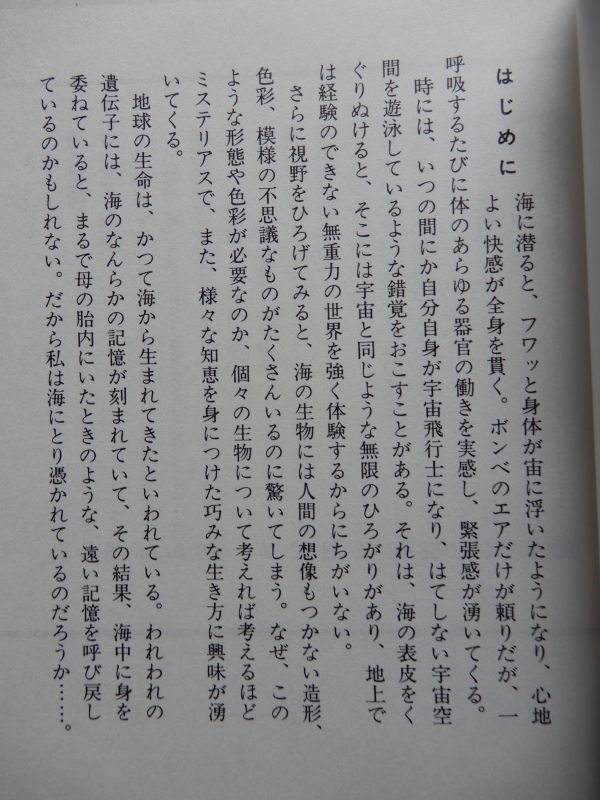 はじめに
海に潜ると、フワッと身体が宙に浮いたようになり、心地
よい快感が全身を貫く。ボンベのエアだけが頼りだが、一
呼吸するたびに体のあらゆる器官の働きを実感し、緊張感が湧いてくる。
時には、いつの間にか自分自身が宇宙飛行士になり、はてしない宇宙空
間を遊泳しているような錯覚をおこすことがある。それは、海の表皮をく
ぐりぬけると、そこには宇宙と同じような無限のひろがりがあり、地上で
は経験のできない無重力の世界を強く体験するからにちがいない。
さらに視野をひろげてみると、海の生物には人間の想像もつかない造形、
色彩、模様の不思議なものがたくさんいるのに驚いてしまう。なぜ、この
ような形態や色彩が必要なのか、個々の生物について考えれば考えるほど
ミステリアスで、また、様々な知恵を身につけた巧みな生き方に興味が湧
いてくる。
地球の生命は、かつて海から生まれてきたといわれている。われわれの
遺伝子には、海のなんらかの記憶が刻まれていて、その結果、海中に身を
委ねていると、まるで母の胎内にいたときのような、遠い記憶を呼び戻し
ているのかもしれない。だから私は海にとり憑かれているのだろうか……。